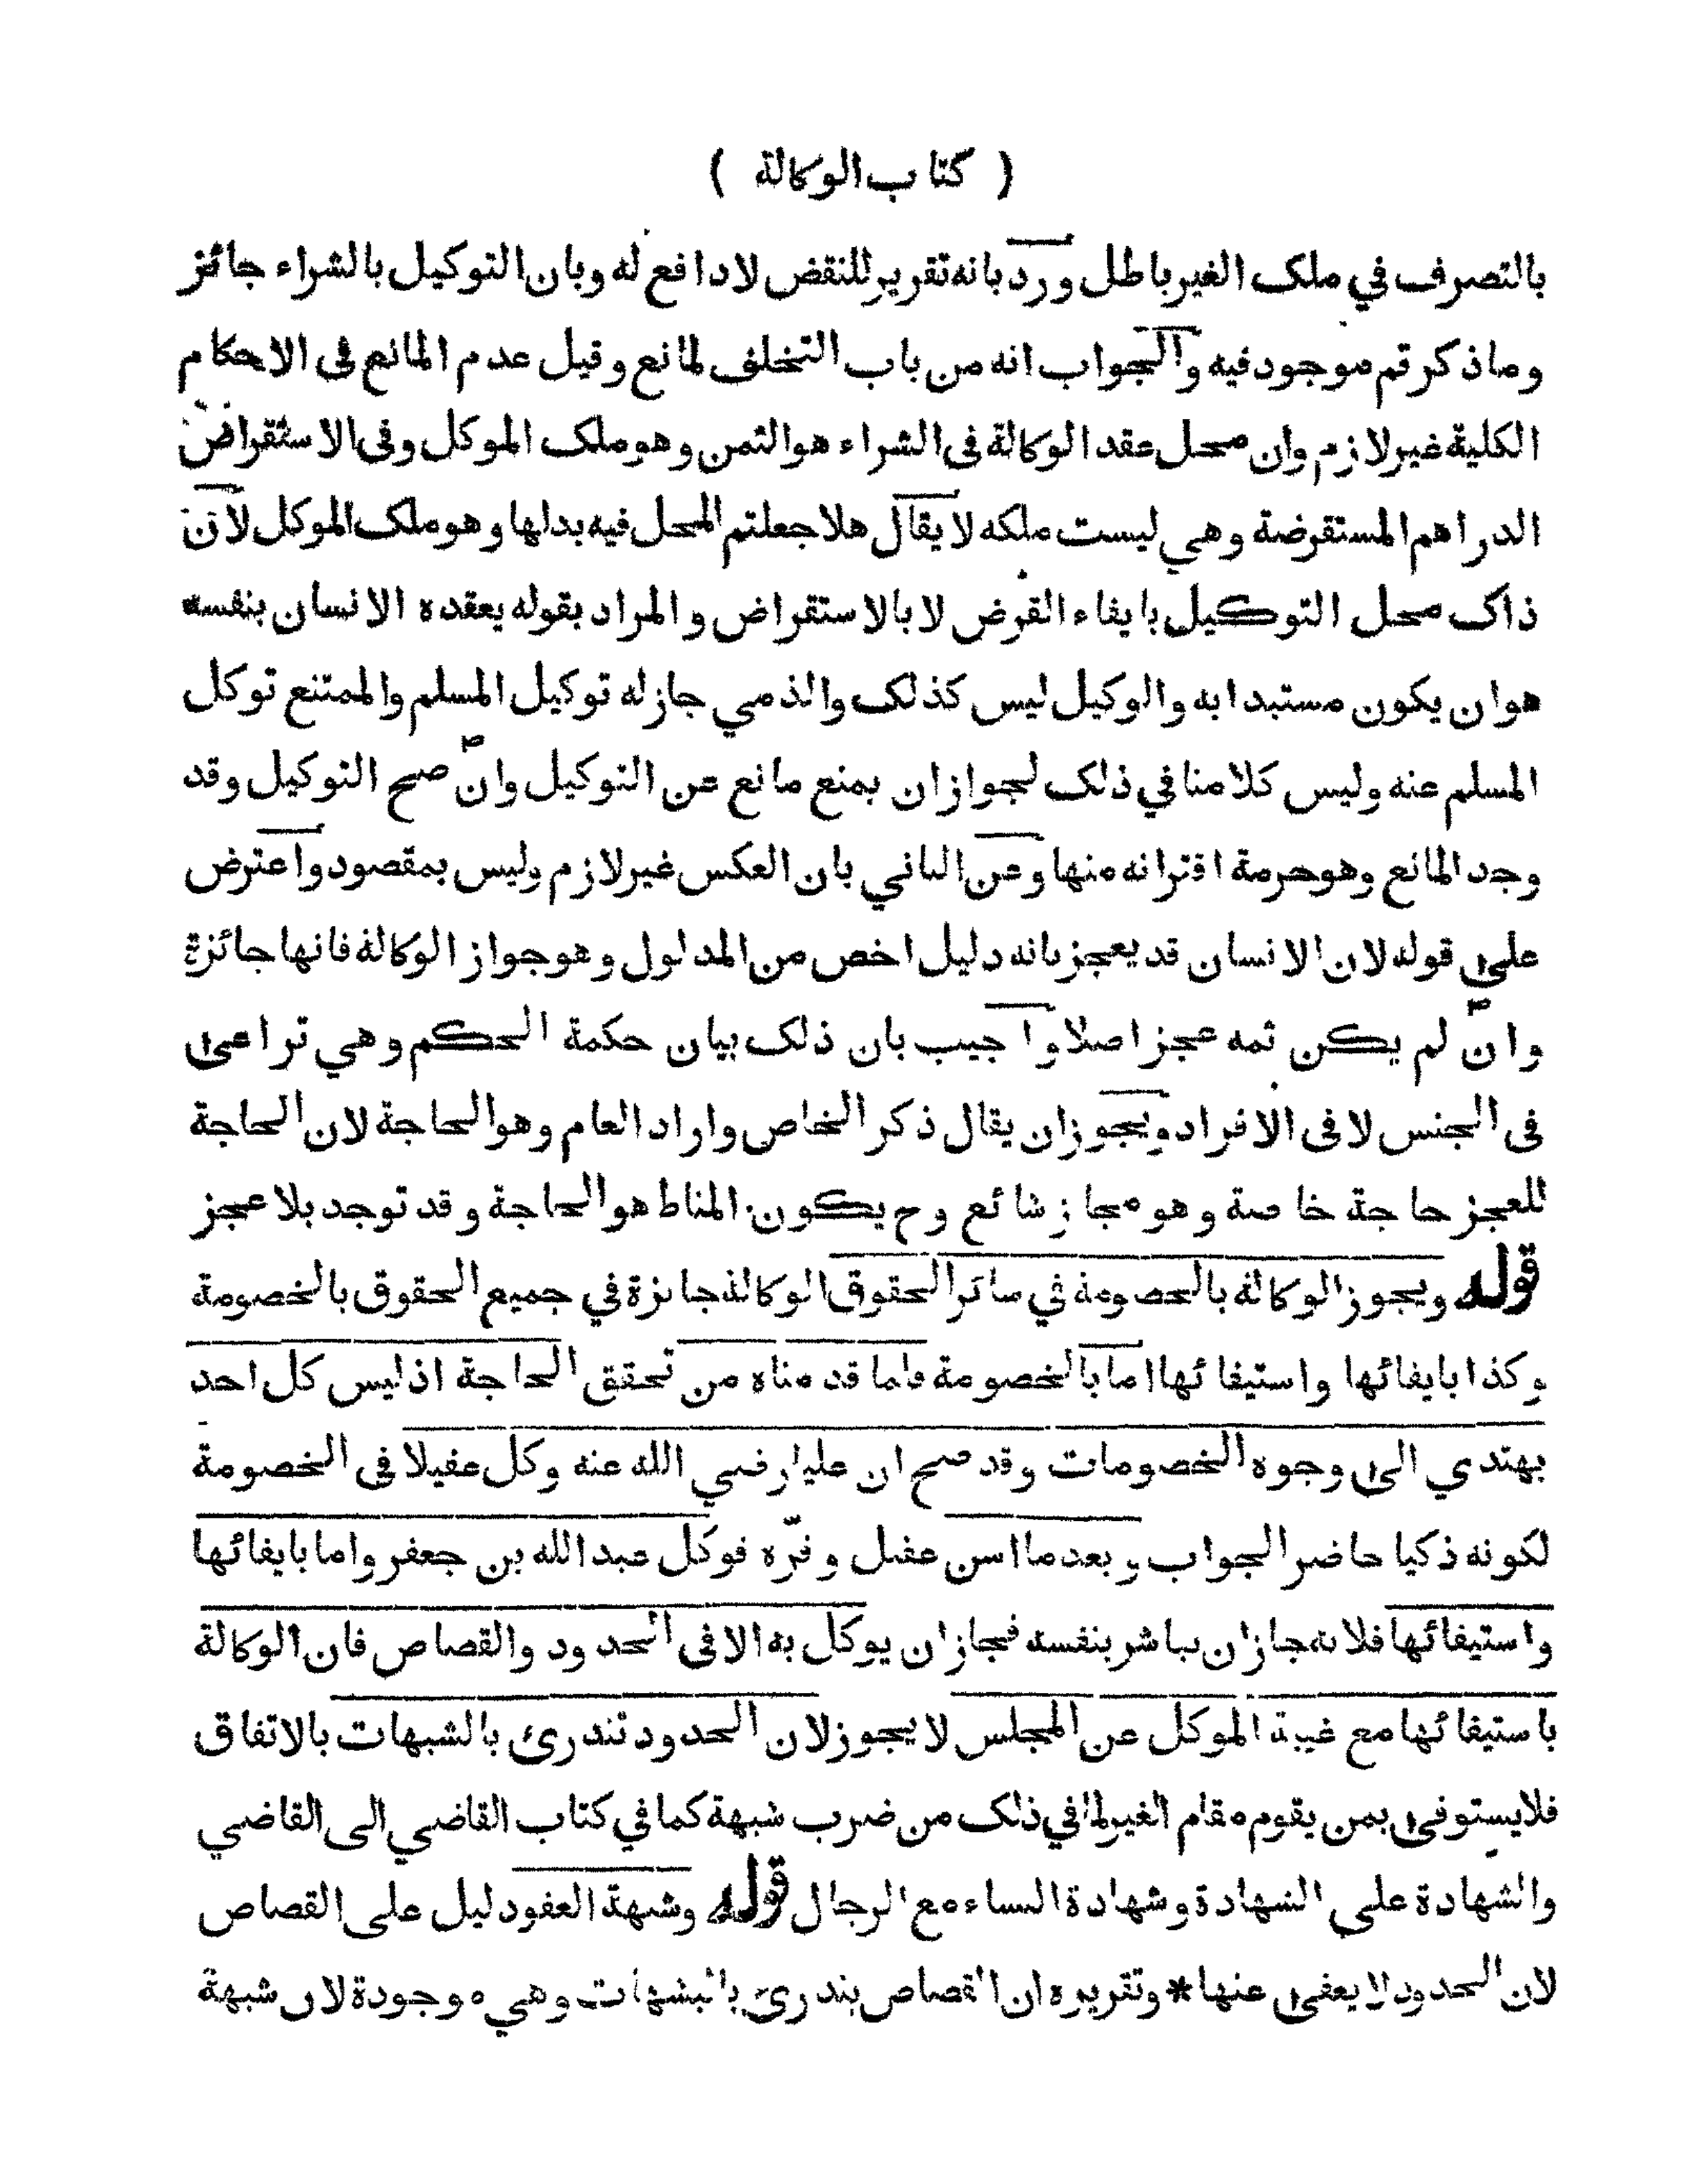 ( كتاب الوكالة )
بالتصرف في ملك الغير باطل ورد بانه تقرير للنقض لا دافع له وبان التوكيل بالشراء جائز
وما ذكر تم موجود فيه والجواب انه من باب التخلف لمانع وقيل عدم المانع فى الاحكام
الكلية غير لازم وان محل عقد الوكالة فى الشراء هو الثمن وهو ملك الموكل وفى الاستقراض
الدراهم المستقرضة وهي ليست ملكه لا يقال هلا جعلتم المحل فيه بدلها وهو ملك الموكل لان
ذاك محل التوكيل بايفاء القرض لا بالاستقراض والمراد بقوله يعقده الانسان بنفسه
هو ان يكون مستبدا به والوكيل ليس كذلك والذمي جاز له توكيل المسلم والممتنع توكل
المسلم عنه وليس كلامنا في ذلك لجواز ان يمنع مانع عن التوكيل وان صح التوكيل وقد
وجد المانع وهو حرمة اقترانه منها وعن الثاني بان العكس غير لازم وليس بمقصود واعترض
على قوله لان الانسان قد يعجز بانه دليل اخص من المدلول وهو جواز الوكالة فانها جائزة
وان لم يكن ثمه عجز اصلا واجيب بان ذلك بيان حكمة الحكم وهي تراعى
فى الجنس لا فى الافراد ويجوز ان يقال ذكر الخاص واراد العام وهو الحاجة لان الحاجة
للعجز حاجة خاصة وهو مجاز شائع وح يكون المناط هو الحاجة وقد توجد بلا عجز
قوله ويجوز الوكالة بالخصومة في سائر الحقوق الوكالة جائزة في جميع الحقوق بالخصومة
وكذا بايفائها واستيفائها اما بالخصومة فلما قدمناه من تحقق الحاجة اذ ليس كل احد
يهتدي الى وجوه الخصومات وقد صح ان عليا رضي الله عنه وكل عقيلا فى الخصومة
لكونه ذكيا حاضر الجواب وبعد ما اسن عقيل وقره فوكل عبد الله بن جعفر واما بايفائها
واستيفائها فلانه جاز ان يباشر بنفسه فجاز ان يوكل به الا فى الحدود والقصاص فان الوكالة
باستيفائها مع غيبة الموكل عن المجلس لا يجوز لان الحدود تندرئ بالشبهات بالاتفاق
فلا يستوفى بمن يقوم مقام الغير لما في ذلك من ضرب شبهة كما في كتاب القاضي الى القاضي
والشهادة على الشهادة وشهادة النساء مع الرجال قوله وشبهة العفو دليل على القصاص
لان الحدود لا يعفى عنها * وتقريره ان القصاص يندرئ بالشبهات وهي موجودة لان شبهة